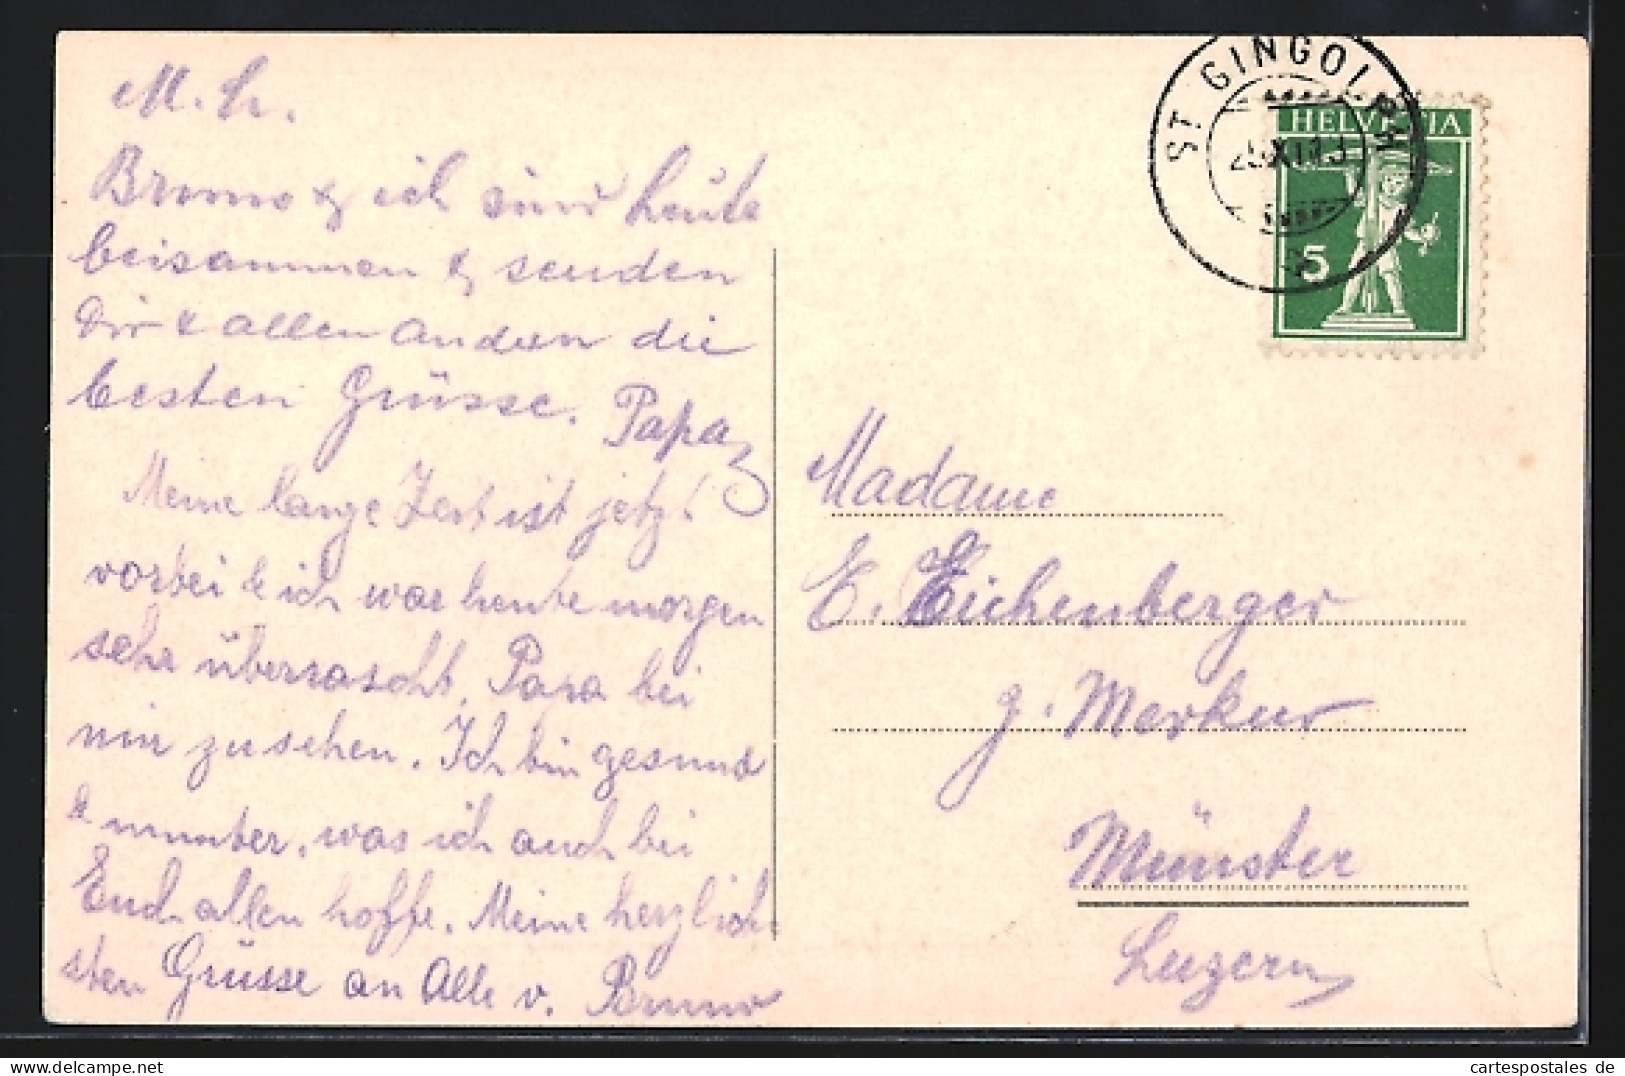 M. L.
Bruno & ich sind heute
beisammen & senden
Dir & allen andern die
besten Grüsse. Papa
Meine lange Zeit ist jetzt
vorbei & ich war heute morgen
sehr überrascht, Papa bei
mir zu sehen. Ich bin gesund
& munter, was ich auch bei
Euch allen hoffe. Meine herzlich-
sten Grüsse an Alle v. Bruno
ST. GINGOLPH
HELVETIA
5
Madame
E. Eichenberger
z. Merkur
Münster
Luzern
cartespostales de